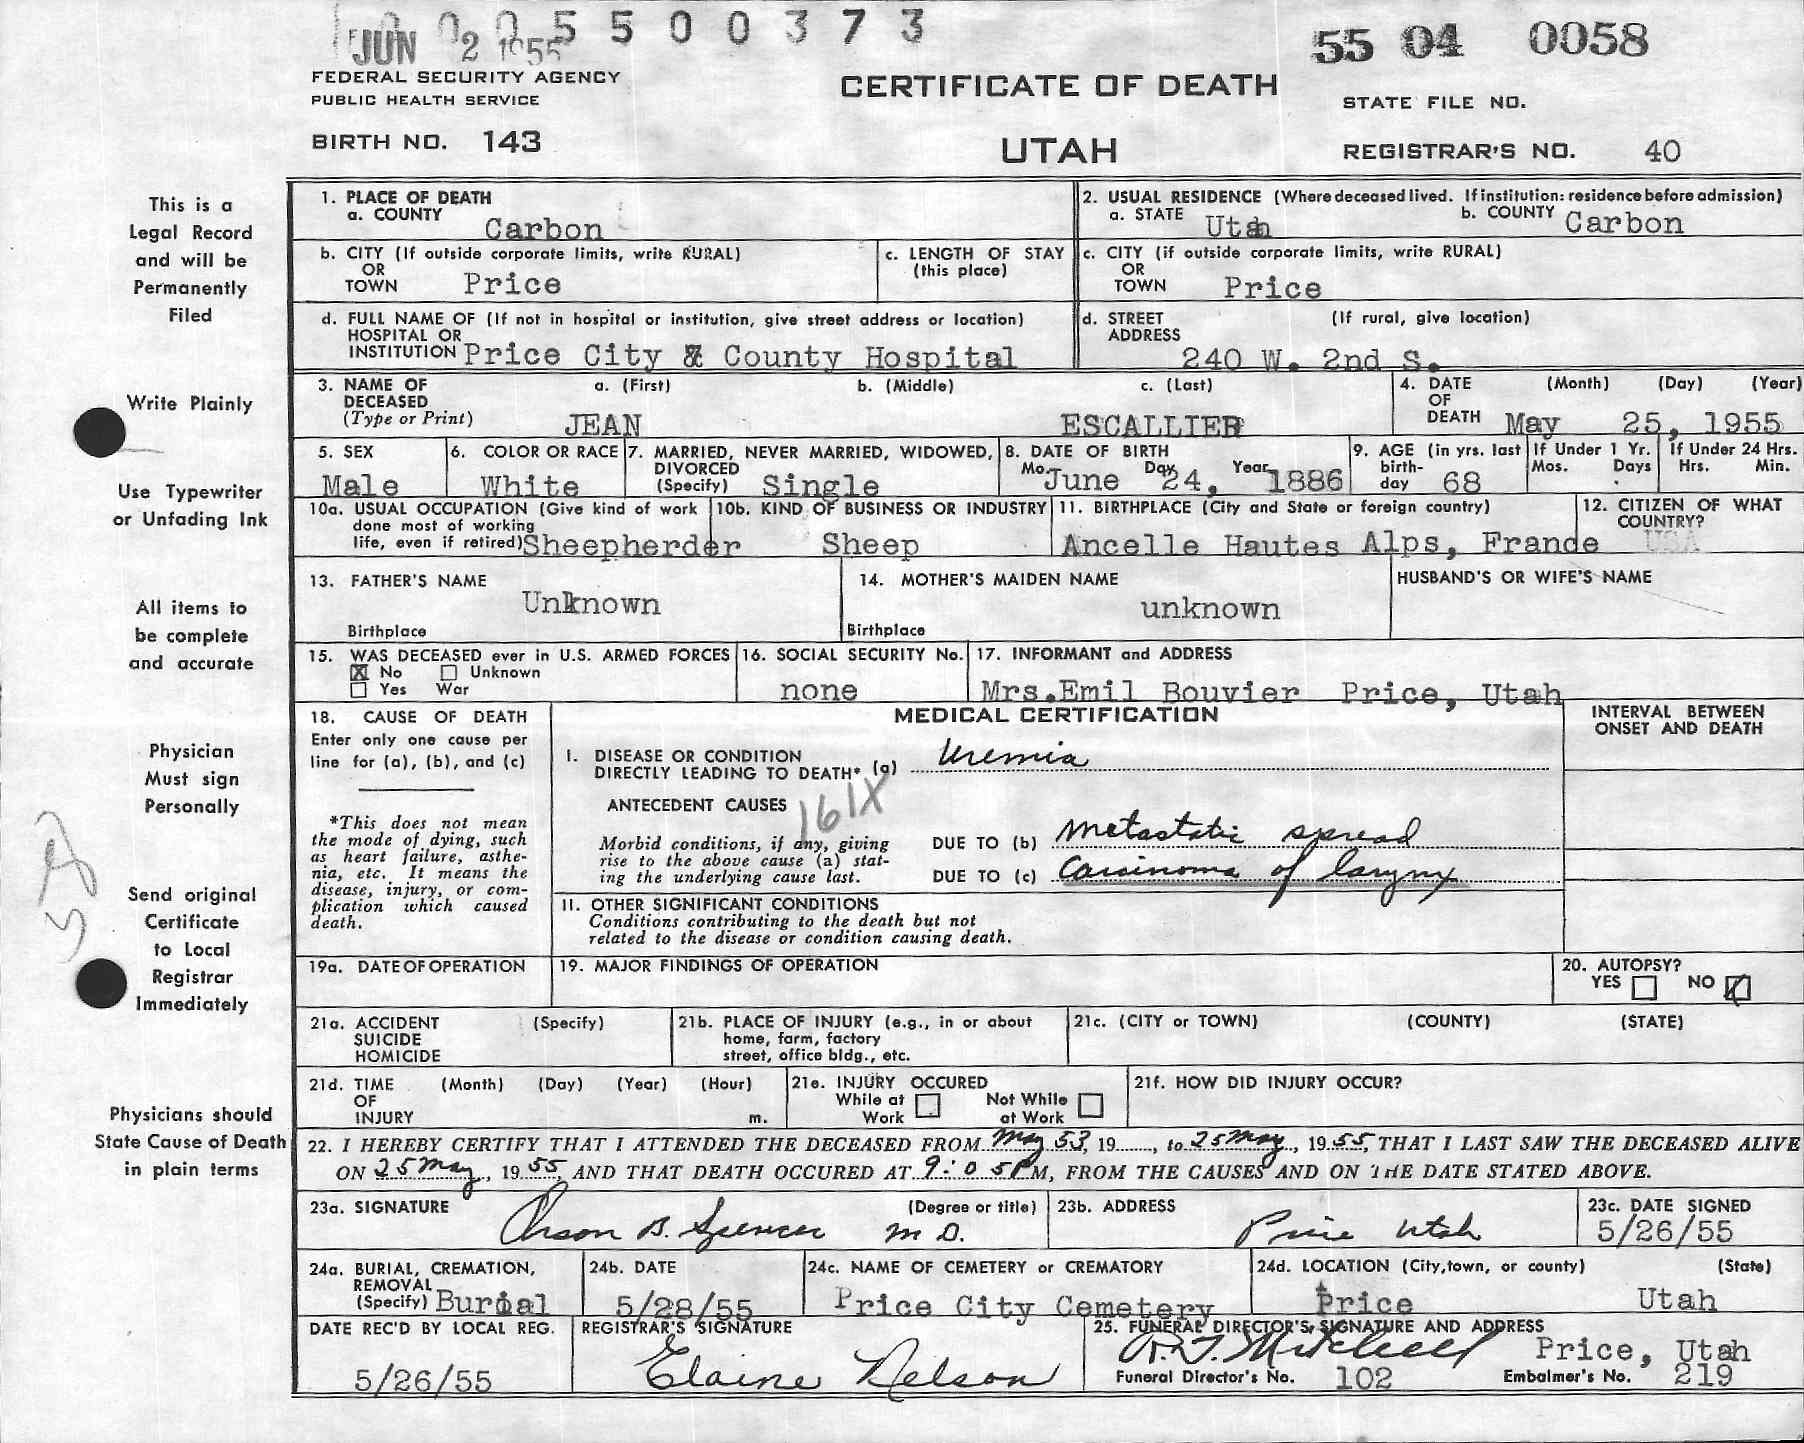 JUN 02 1955 5500373
55 04 0058
FEDERAL SECURITY AGENCY
PUBLIC HEALTH SERVICE
CERTIFICATE OF DEATH
STATE FILE NO.
BIRTH NO. 143
UTAH
REGISTRAR'S NO. 40
This is a
Legal Record
and will be
Permanently
Filed
Write Plainly
Use Typewriter
or Unfading Ink
All items to
be complete
and accurate
Physician
Must sign
Personally
Send original
Certificate
to Local
Registrar
Immediately
Physicians should
State Cause of Death
in plain terms
1. PLACE OF DEATH
a. COUNTY Carbon
2. USUAL RESIDENCE (Where deceased lived. If institution: residence before admission)
a. STATE Utah b. COUNTY Carbon
b. CITY (If outside corporate limits, write RURAL)
OR
TOWN Price
c. LENGTH OF STAY
(this place)
c. CITY (if outside corporate limits, write RURAL)
OR
TOWN Price
d. FULL NAME OF (If not in hospital or institution, give street address or location)
HOSPITAL OR
INSTITUTION Price City & County Hospital
d. STREET (If rural, give location)
ADDRESS
240 W. 2nd S.
3. NAME OF a. (First) b. (Middle) c. (Last)
DECEASED
(Type or Print) JEAN ESCALLIER
4. DATE (Month) (Day) (Year)
OF
DEATH May 25, 1955
5. SEX
Male
6. COLOR OR RACE
White
7. MARRIED, NEVER MARRIED, WIDOWED,
DIVORCED
(Specify) Single
8. DATE OF BIRTH
Mo. Day Year
June 24, 1886
9. AGE (in yrs. last
birth-
day 68
If Under 1 Yr.
Mos. Days
If Under 24 Hrs.
Hrs. Min.
10a. USUAL OCCUPATION (Give kind of work
done most of working
life, even if retired) Sheepherder
10b. KIND OF BUSINESS OR INDUSTRY
Sheep
11. BIRTHPLACE (City and State or foreign country)
Ancelle Hautes Alps, Frande
12. CITIZEN OF WHAT
COUNTRY?
USA
13. FATHER'S NAME
Unknown
Birthplace
14. MOTHER'S MAIDEN NAME
unknown
Birthplace
HUSBAND'S OR WIFE'S NAME
15. WAS DECEASED ever in U.S. ARMED FORCES
X No Unknown
Yes War
16. SOCIAL SECURITY No.
none
17. INFORMANT and ADDRESS
Mrs.Emil Bouvier Price, Utah
18. CAUSE OF DEATH
Enter only one cause per
line for (a), (b), and (c)
*This does not mean
the mode of dying, such
as heart failure, asthe-
nia, etc. It means the
disease, injury, or com-
plication which caused
death.
MEDICAL CERTIFICATION
INTERVAL BETWEEN
ONSET AND DEATH
I. DISEASE OR CONDITION
DIRECTLY LEADING TO DEATH* (a) Uremia
ANTECEDENT CAUSES 161X
Morbid conditions, if any, giving
rise to the above cause (a) stat-
ing the underlying cause last.
DUE TO (b) Metastatic spread
DUE TO (c) Carcinoma of larynx
11. OTHER SIGNIFICANT CONDITIONS
Conditions contributing to the death but not
related to the disease or condition causing death.
19a. DATE OF OPERATION
19. MAJOR FINDINGS OF OPERATION
20. AUTOPSY?
YES NO
21a. ACCIDENT (Specify)
SUICIDE
HOMICIDE
21b. PLACE OF INJURY (e.g., in or about
home, farm, factory
street, office bldg., etc.
21c. (CITY or TOWN) (COUNTY) (STATE)
21d. TIME (Month) (Day) (Year) (Hour)
OF
INJURY m.
21e. INJURY OCCURED
While at Not While
Work at Work
21f. HOW DID INJURY OCCUR?
22. I HEREBY CERTIFY THAT I ATTENDED THE DECEASED FROM May 53, 19......, to 25 May, 1955, THAT I LAST SAW THE DECEASED ALIVE
ON 25 May, 1955, AND THAT DEATH OCCURED AT 9:05 P M, FROM THE CAUSES AND ON THE DATE STATED ABOVE.
23a. SIGNATURE (Degree or title)
Orson B. Spencer M D.
23b. ADDRESS
Price Utah
23c. DATE SIGNED
5/26/55
24a. BURIAL, CREMATION,
REMOVAL
(Specify) Burial
24b. DATE
5/28/55
24c. NAME OF CEMETERY or CREMATORY
Price City Cemetery
24d. LOCATION (City,town, or county) (State)
Price Utah
DATE REC'D BY LOCAL REG.
5/26/55
REGISTRAR'S SIGNATURE
Elaine Nelson
25. FUNERAL DIRECTOR'S SIGNATURE AND ADDRESS
Mitchell Price, Utah
Funeral Director's No. 102 Embalmer's No. 219